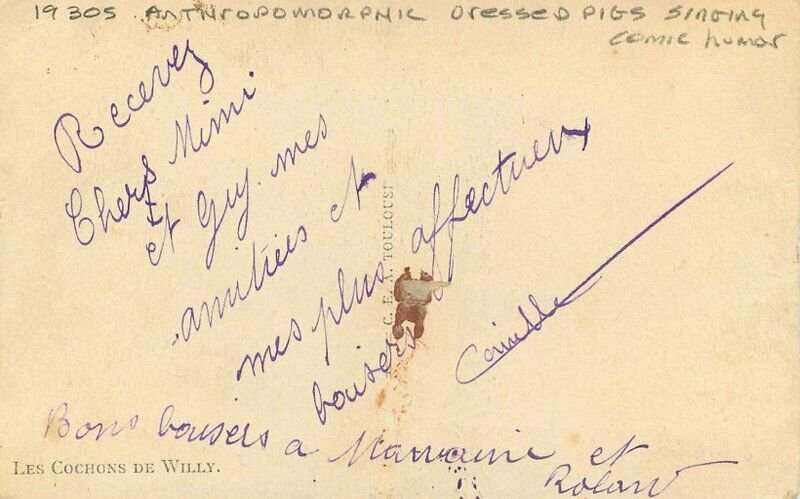 1930s ANTHROPOMORPHIC DRESSED PIGS SINGING
COMIC HUMOR
Recevez
Chers Mimi
et Guy mes
amitiées et
mes plus affectueux
baisers
Camille
C. E. A. TOULOUSE
Bons baisers a et
Roland
LES COCHONS DE WILLY.